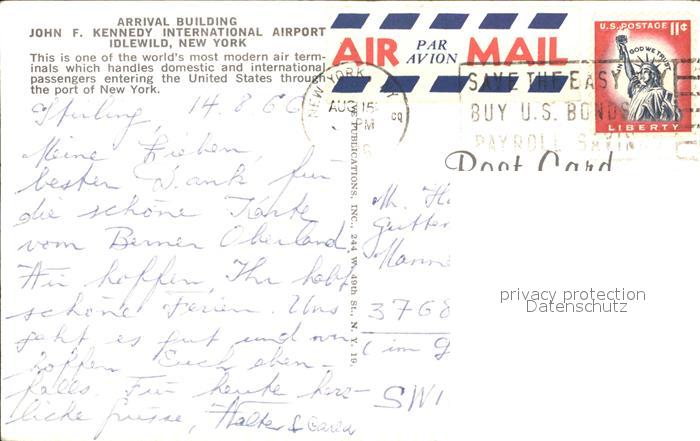 ARRIVAL BUILDING
JOHN F. KENNEDY INTERNATIONAL AIRPORT
IDLEWILD, NEW YORK
This is one of the world's most modern air ter-
minals which handles domestic and international
passengers entering the United States through
the port of New York.
AIR PAR AVION MAIL
U.S. POSTAGE 11¢
IN GOD WE TRUST
LIBERTY
NEW YORK
AUG 15
PM
SAVE THE EASY
BUY U.S. BONDS
PAYROLL SAVIN
Post Card
14.8.6
Meine Lieben,
besten Dank für
die schöne Karte
vom Berner Oberland.
Wir hoffen, Ihr habt
schöne Ferien. Uns
geht es gut und wir
hoffen Euch eben-
falls. Für heute herz-
liche Grüsse, Walter & Carla
PUBLICATIONS, INC., 244 W. 49th ST., N. Y. 19,
3768
im G
SWI
privacy protection
Datenschutz